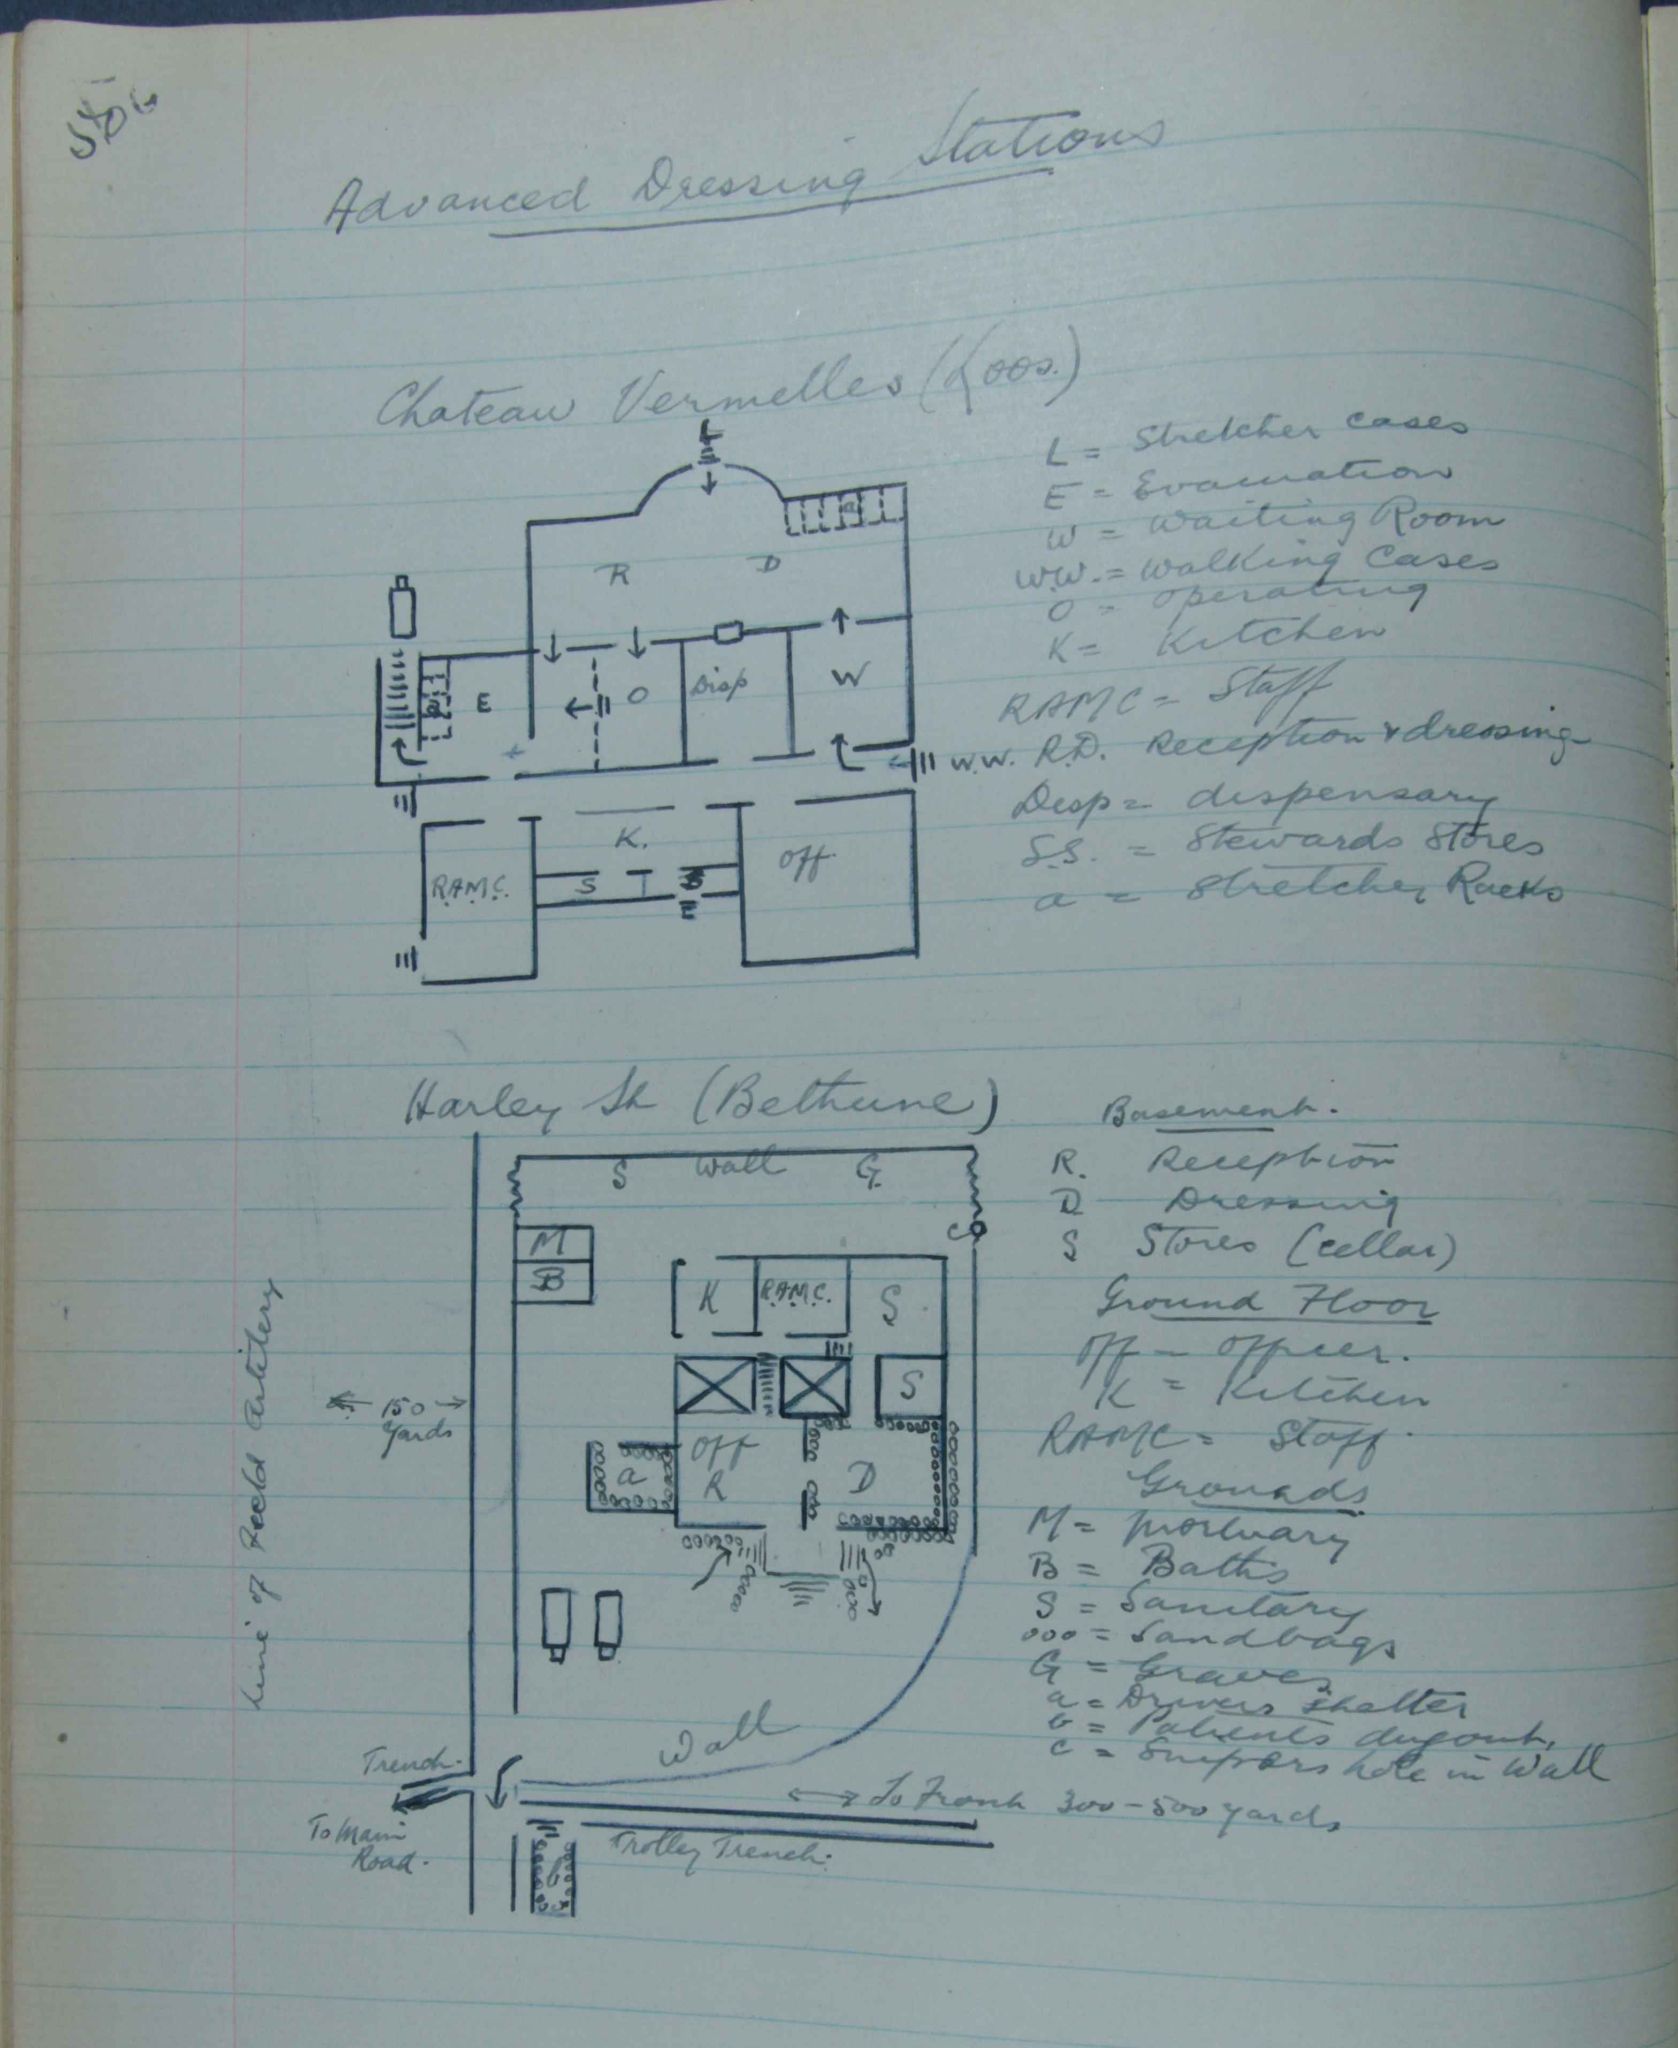 Advanced Dressing Stations
Chateau Vermelles (Loos.)
L
L = Stretcher cases
E = Evacuation
W = Waiting Room
W.W. = Walking Cases
O = Operating
K = Kitchen
RAMC = Staff
R.D. Reception & dressing
Disp = dispensary
S.S. = Stewards Stores
a = Stretcher Racks
a
R D
a E O Disp W
W.W.
K.
R.A.M.C. S Off
Harley St (Bethune)
S Wall G
C
M
B
K R.A.M.C. S
S
Off
a R D
Line of Field Artillery
150
yards
Wall
Trench.
To Main
Road.
To Front 300-500 yards
Trolley Trench.
b
Basement.
R. Reception
D Dressing
S Stores (cellar)
Ground Floor
Off = Officer.
K = Kitchen
RAMC = Staff.
Grounds
M = Mortuary
B = Baths
S = Sanitary
ooo = Sandbags
G = Graves
a = Drivers shelter
b = Patients dugout,
c = Snipers hole in Wall